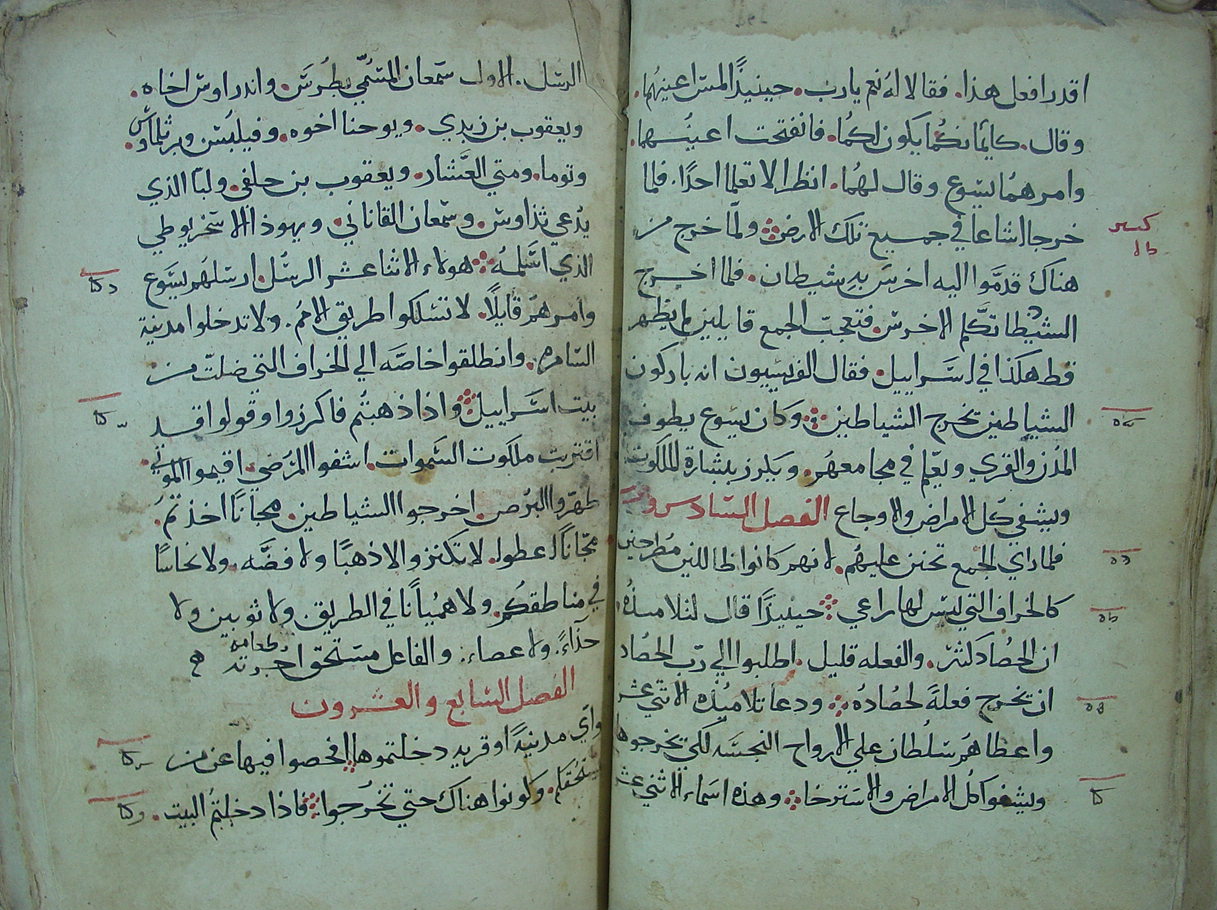 اقدر افعل هذا. فقالا له نعم يارب. حينيذًا لمس اعينهما.
وقال. كايمانكما يكون لكما. فانفتحت اعينهما
وامرهما يسوع وقال لهما. انظرا لا تعلما احدًا. فلما
خرجا اشاعا في جميع تلك الارض ولما خرج من
هناك قدموا اليه اخرس به شيطان. فلما اخرج
الشيطان تكلم الاخرس. فتعجب الجمع قايلين لم يظهر
قط هكذا في اسراييل. فقال الفريسيون انه باركون
الشياطين يخرج الشياطين وكان يسوع يطوف
المدن والقري ويعلم في مجامعهم. ويكرز ببشارة الملكوت
ويشفي كل الامراض والاوجاع الفصل السادس و
فلما راي الجمع تحنن عليهم. لانهم كانوا ظالين مطرحين
كالخراف التي ليس لها راعي حينيذًا قال لتلاميذه
ان الحصاد كثير. والفعله قليل. اطلبوا الي رب الحصاد
ان يخرج فعلةً لحصاده ودعا تلاميذه الاثني عشر
واعطاهم سلطان علي الارواح النجسه لكي يخرجوها
ويشفوا كل الامراض والاسترخا وهذه اسماء الاثني عشر
الرسل. الاول سمعان المسمي بطرس. واندراوس اخاه.
ويعقوب بن زبدي. ويوحنا اخوه. وفيلبس وبرثلماوس
وتوما. ومتي العشار. ويعقوب بن حلفي. ولبا الذي
يدعي تداوس. وسمعان القاناني. ويهوذا الاسخريوطي
الذي اسلمه هولاء الاثنا عشر الرسل. ارسلهم يسوع
وامرهم قايلًا. لا تسلكوا طريق الامم. ولا تدخلوا مدينة
السامره. وانطلقوا خاصه الي الخراف التي ضلت من
بيت اسراييل واذا ذهبتم فاكرزوا وقولوا قد
اقتربت ملكوت السموات. اشفوا المرضي. اقيموا الموتي
طهروا البرص. اخرجوا الشياطين. مجانًا اخذتم.
مجانًا اعطوا. لا تكنزوا لا ذهبًا ولا فضه. ولا نحاسًا
في مناطقكم. ولا هميانًا في الطريق. ولا ثوبين ولا
حذاءً. ولا عصاء. والفاعل مستحق اجرته طعامه
الفصل السابع والعشرون
واي مدينةً او قريه دخلتموها افحصوا فيها عن من
يستحقكم. وكونوا هناك حتي تخرجوا فاذا دخلتم البيت.